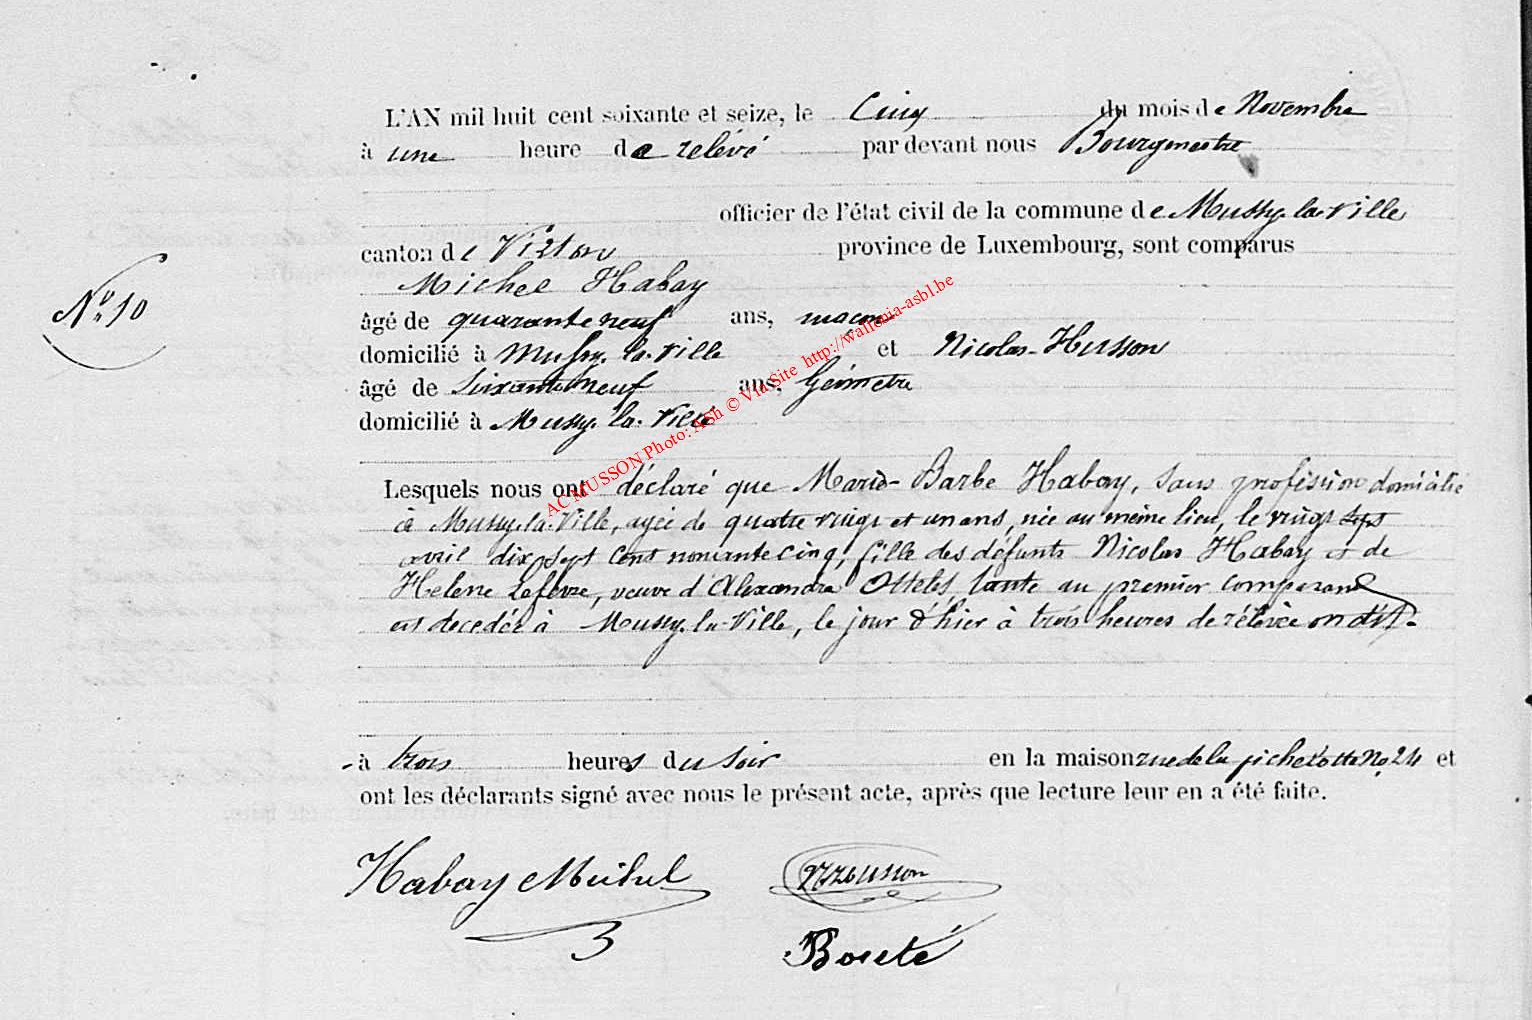 L'AN mil huit cent soixante et seize, le Cinq du mois de Novembre
à une heure de relévé par devant nous Bourgmestre
officier de l'état civil de la commune de Mussy-la-Ville
canton de Virton province de Luxembourg, sont comparus
Michel Habay
N° 10
âgé de quaranteneuf ans, maçon
domicilié à Mussy-la-Ville et Nicolas Husson
âgé de Soixanteneuf ans, Géometre
domicilié à Mussy-la-Ville
AC MUSSON Photo: ASh © Via Site http://wallonia-asbl.be
Lesquels nous ont déclaré que Marie-Barbe Habay, sans profession domiciliée
à Mussy-la-Ville, agée de quatre vingt et un ans, née au même lieu, le vingt sept
avril dix sept cent nonante cinq, fille des défunts Nicolas Habay et de
Helene Lefèvre, veuve d'Alexandre Ottelet, tante au premier comparant
est decedée à Mussy-la-Ville, le jour d'hier à trois heures de rélévée
à trois heures du soir en la maison rue de la No 24 et
ont les déclarants signé avec nous le présent acte, après que lecture leur en a été faite.
Habay Michel Husson